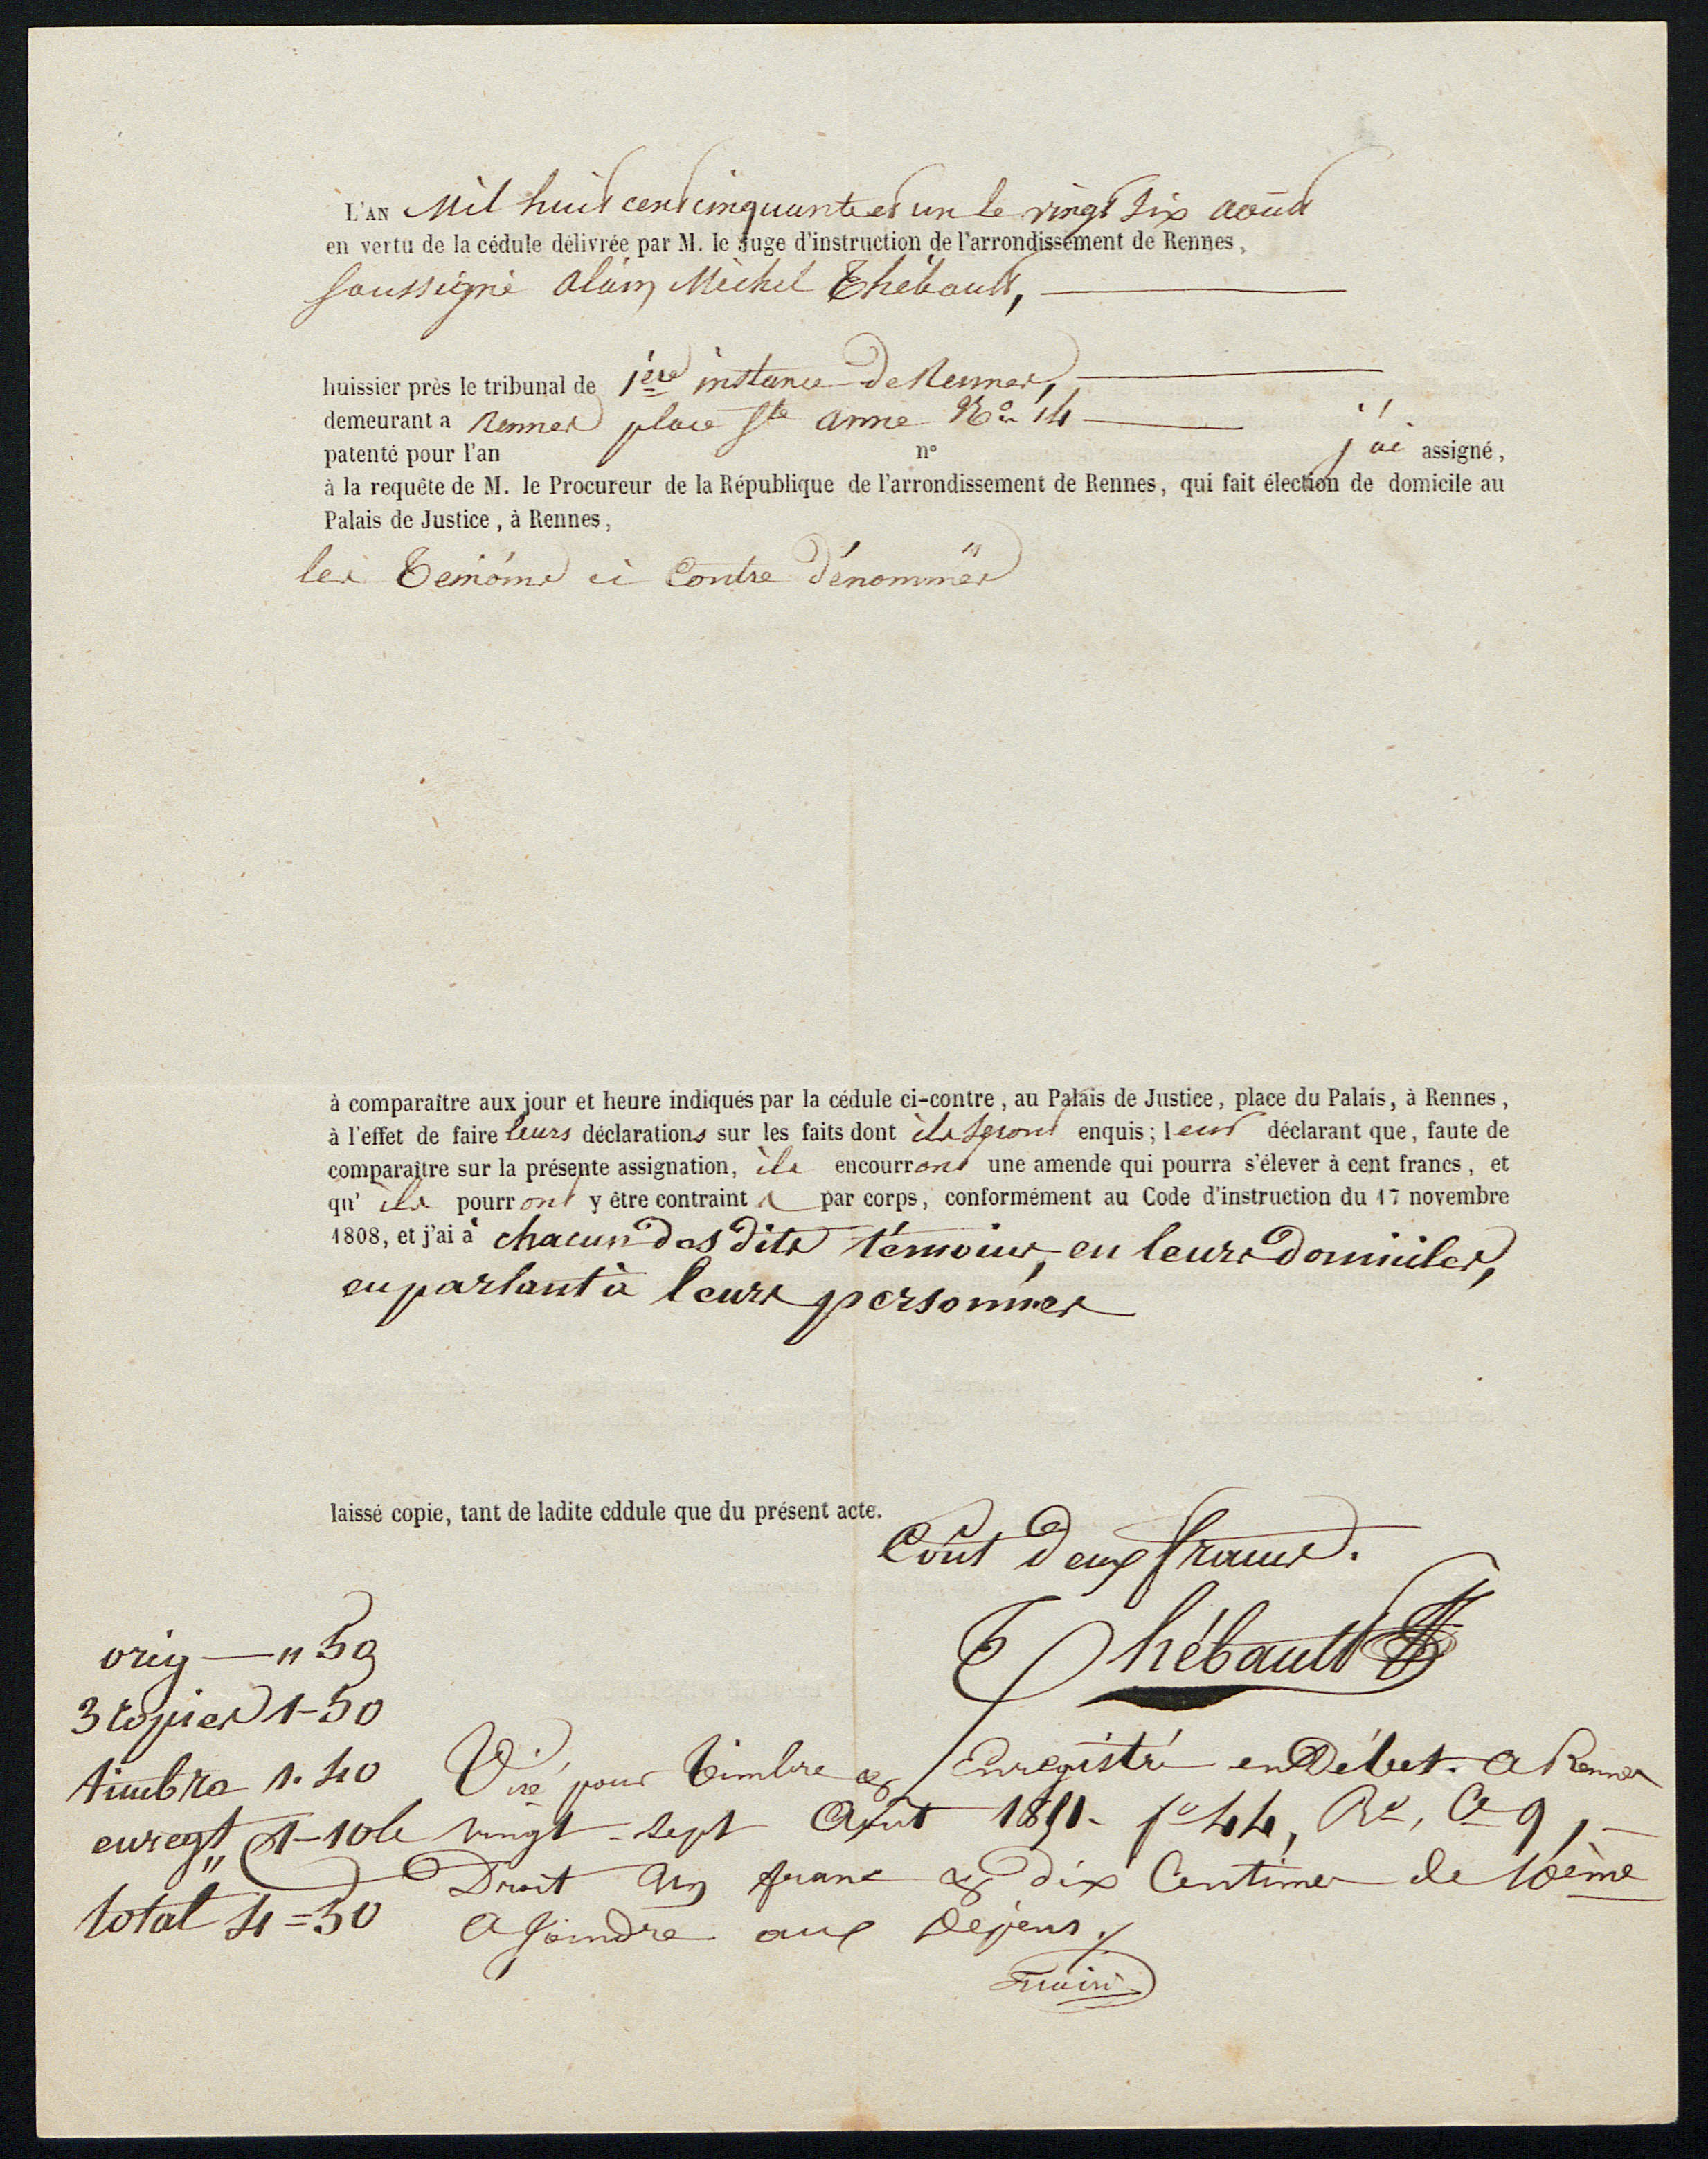 L'AN Mil huit cent cinquante et un le vingt six août
en vertu de la cédule délivrée par M. le Juge d'instruction de l'arrondissement de Rennes,
soussigné Alain Michel Thébault,
huissier près le tribunal de 1ère instance de Rennes,
demeurant a Rennes place Ste anne No 14
patenté pour l'an n° j'ai assigné,
à la requête de M. le Procureur de la République de l'arrondissement de Rennes, qui fait élection de domicile au
Palais de Justice, à Rennes,
les Temoins ci Contre dénommés
à comparaître aux jour et heure indiqués par la cédule ci-contre, au Palais de Justice, place du Palais, à Rennes,
à l'effet de faire leurs déclarations sur les faits dont ils seront enquis; leur déclarant que, faute de
comparaître sur la présente assignation, ils encourront une amende qui pourra s'élever à cent francs, et
qu' ils pourront y être contraints par corps, conformément au Code d'instruction du 17 novembre
1808, et j'ai à chacun des dits témoins, en leurs domiciles,
en parlant à leurs personnes
laissé copie, tant de ladite cddule que du présent acte.
Coût deux francs.
Thébault
orig — " 50
3 copies 1-50
timbre 1. 40
euregt 1-10
total 4=50
Visé pour timbre & Enregistré en Débet. A Rennes
le vingt-sept Août 1851. fo 44, Ro, Ce 9,
Droit un franc & dix Centimes de 10ème
A Joindre aux Dépens.